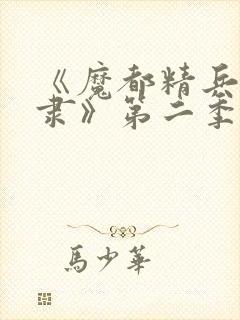 《魔都精兵
隶》第二季
馬少華